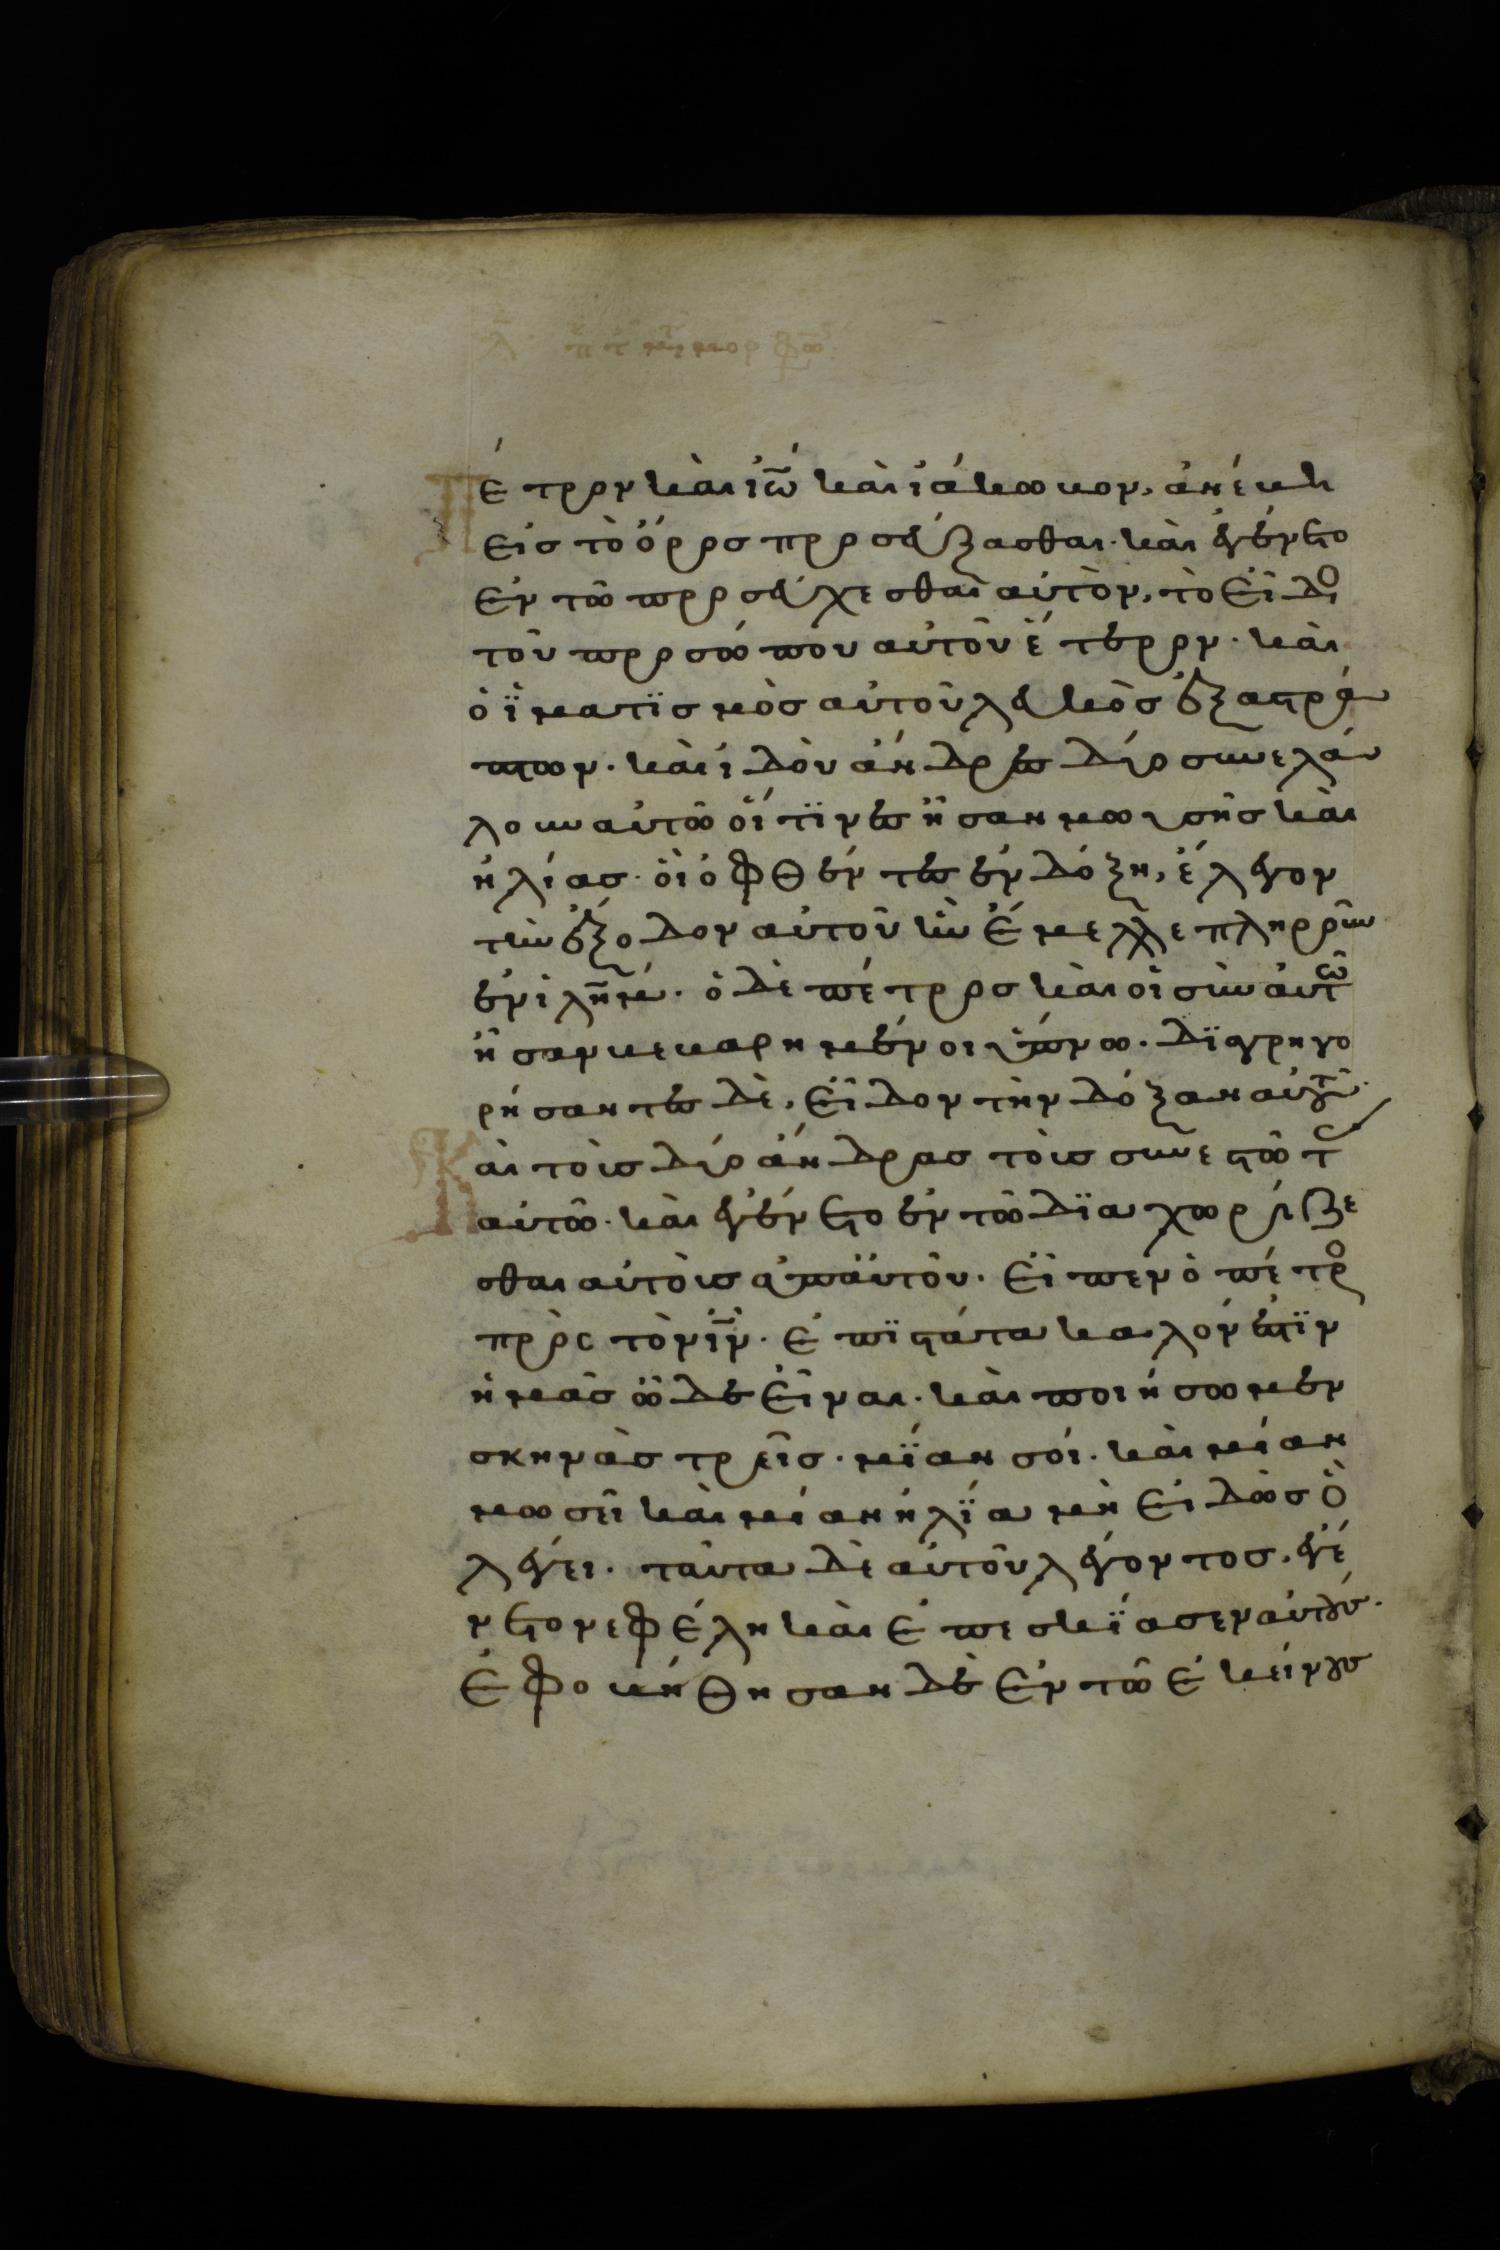 Πέτρον καὶ ἰῶ καὶ ἰάκωβον, ἀνέβη
εἰς τὸ ὄρος προσεύξασθαι· καὶ ἐγένετο
ἐν τῶ προσεύχεσθαι αὐτὸν, τὸ εἶδο
τοῦ προσώπου αὐτοῦ ἕτερον· καὶ
ὁ ϊματϊσμὸς αὐτοῦ λευκὸς ἐξαστρά
πτων· καὶ ἰδοὺ ἄνδρες δύο συνελά
λουν αὐτῶ οἵτϊνες ἦσαν μωυσῆς καὶ
ἠλίας· οἳ ὀφθέντες ἐν δόξη, ἔλεγον
τὴν ἔξοδον αὐτοῦ ἣν ἔμελλε πληροῦν
ἐν ἰλῆμ· ὁ δὲ πέτρος καὶ οἱ σὺν αὐτῶ
ἦσαν βεβαρημένοι ὕπνω· δϊαγρηγο
ρήσαντες δὲ, εἶδον τὴν δόξαν αὐτοῦ·
Καὶ τοὺς δύο ἄνδρας τοὺς συνεστῶτ
αὐτῶ· καὶ ἐγένετο ἐν τῶ δϊαχωρίζε
σθαι αὐτοὺς ἀπ αὐτοῦ· εἶπεν ὁ πέτρο
πρὸς τὸν ιν· ἐπϊστάτα καλόν ἐστϊν
ἡμᾶς ὧδε εἶναι· καὶ ποιήσωμεν
σκηνὰς τρεῖς· μϊαν σοί· καὶ μίαν
μωσεῖ καὶ μίαν ἠλϊα μὴ εἰδὼς ὃ
λέγει· ταῦτα δὲ αὐτοῦ λέγοντος, ἐγέ
νετο νεφέλη καὶ ἐπεσκϊασεν αὐτούς·
ἐφοβήθησαν δὲ ἐν τῶ ἐκείνους